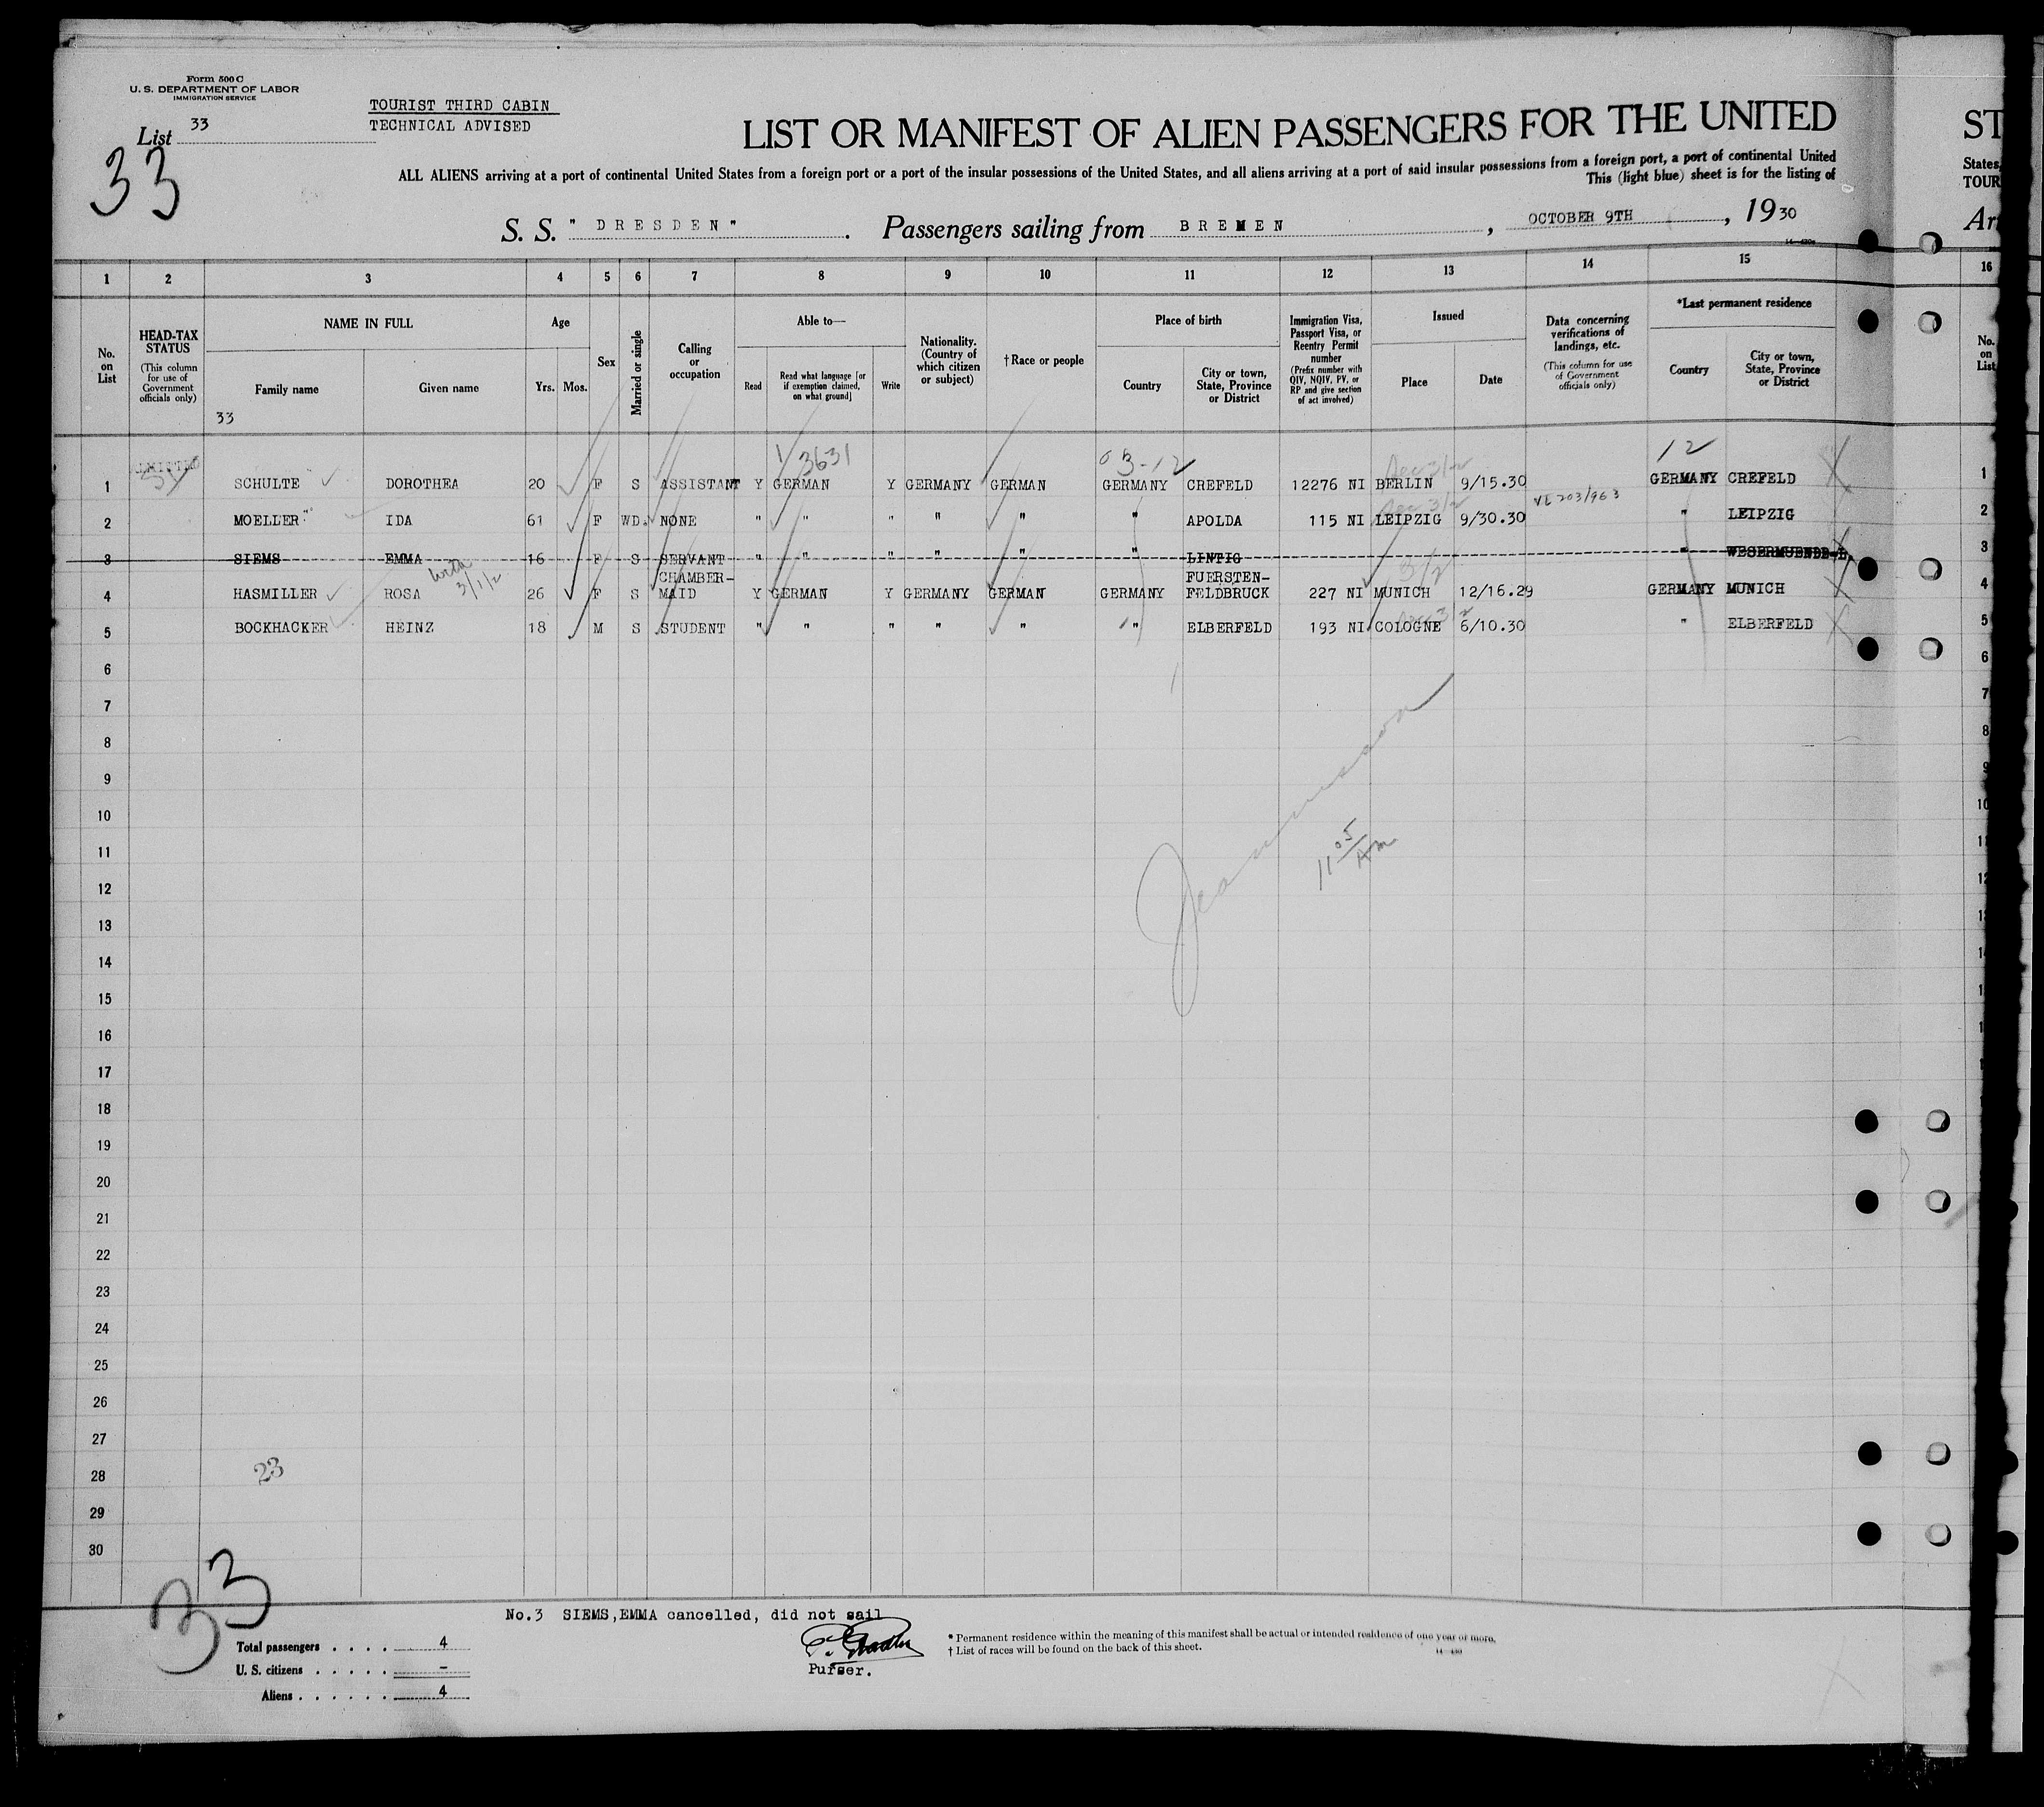 Form 500 C
U. S. DEPARTMENT OF LABOR
IMMIGRATION SERVICE
TOURIST THIRD CABIN
TECHNICAL ADVISED
List 33
33
LIST OR MANIFEST OF ALIEN PASSENGERS FOR THE UNITED
ST
ALL ALIENS arriving at a port of continental United States from a foreign port or a port of the insular possessions of the United States, and all aliens arriving at a port of said insular possessions from a foreign port, a port of continental United
States,
This (light blue) sheet is for the listing of
TOUR
S. S. " DRESDEN " . Passengers sailing from BREMEN , OCTOBER 9TH , 1930
Ar
1 2 3 4 5 6 7 8 9 10 11 12 13 14 15 16
No. on List
HEAD-TAX STATUS
(This column for use of Government officials only)
NAME IN FULL
Family name
Given name
33
Age
Yrs. Mos.
Sex
Married or single
Calling or occupation
Able to—
Read
Read what language [or if exemption claimed, on what ground]
Write
Nationality. (Country of which citizen or subject)
†Race or people
Place of birth
Country
City or town, State, Province or District
Immigration Visa, Passport Visa, or Reentry Permit number
(Prefix number with QIV, NQIV, PV, or RP and give section of act involved)
Issued
Place
Date
Data concerning verifications of landings, etc.
(This column for use of Government officials only)
*Last permanent residence
Country
City or town, State, Province or District
No. on List
1/3631
03-12
12
1 SCHULTE DOROTHEA 20 F S ASSISTANT Y GERMAN Y GERMANY GERMAN GERMANY CREFELD 12276 NI BERLIN 9/15.30 GERMANY CREFELD 1
VL 203/963
2 MOELLER IDA 61 F WD. NONE " " " " " " APOLDA 115 NI LEIPZIG 9/30.30 " LEIPZIG 2
3 SIEMS EMMA 16 F S SERVANT " " " " " " LINTIG " WESERMUENDE-L. 3
3/1/2
4 HASMILLER ROSA 26 F S CHAMBER-MAID Y GERMAN Y GERMANY GERMAN GERMANY FUERSTEN-FELDBRUCK 227 NI MUNICH 12/16.29 GERMANY MUNICH 4
5 BOCKHACKER HEINZ 18 M S STUDENT " " " " " " ELBERFELD 193 NI COLOGNE 6/10.30 " ELBERFELD 5
6 6
7 7
8 8
9 9
10 10
11 11
11 05/Am
12 12
13
14
15
16
17
18
19
20
21
22
23
24
25
26
27
28
23
29
30
33
No.3 SIEMS,EMMA cancelled, did not sail
Total passengers . . . . 4
U. S. citizens . . . . . –
Aliens . . . . . . 4
Purser.
* Permanent residence within the meaning of this manifest shall be actual or intended residence of one year or more.
† List of races will be found on the back of this sheet.